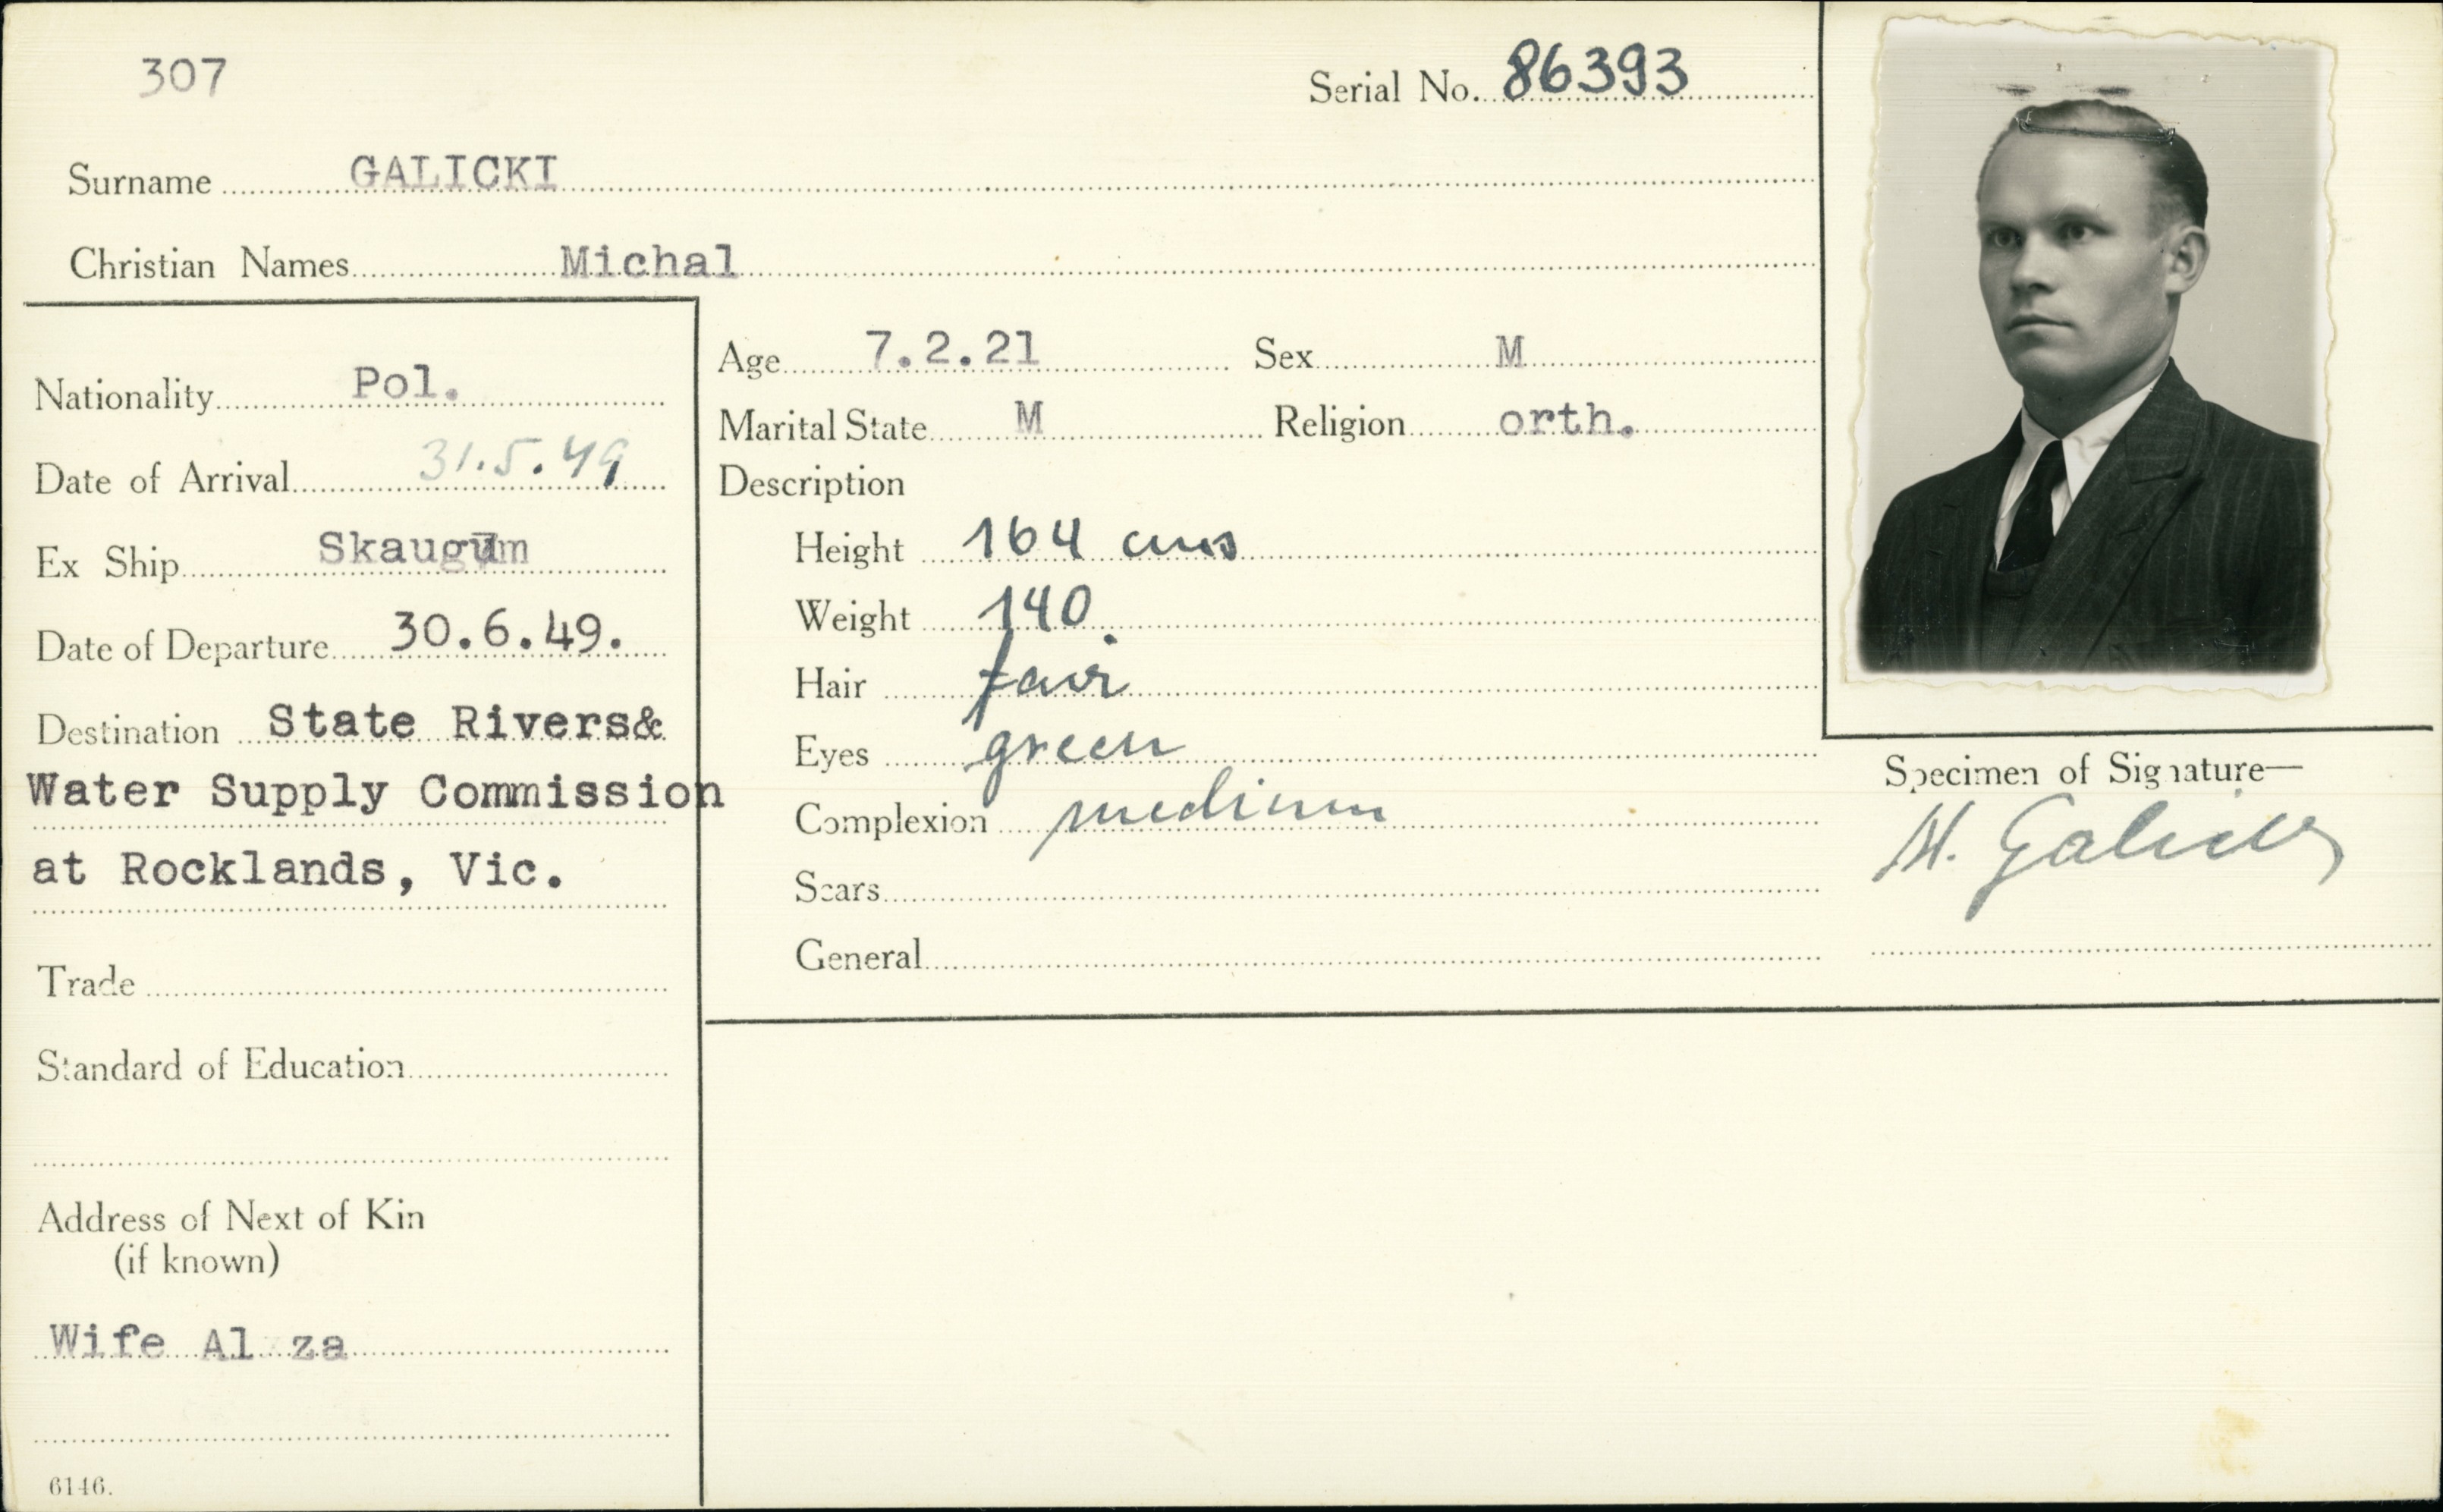 307
Serial No. 86393
Surname GALICKI
Christian Names Michal
Nationality Pol.
Date of Arrival 31.5.49
Ex Ship Skaugum
Date of Departure 30.6.49.
Destination State Rivers&
Water Supply Commission
at Rocklands, Vic.
Trade
Standard of Education
Address of Next of Kin
(if known)
Wife Al za
6146.
Age 7.2.21 Sex M
Marital State M Religion orth.
Description
Height 164 cms
Weight 140.
Hair fair
Eyes green
Complexion medium
Scars
General
Specimen of Signature—
M. Galicki